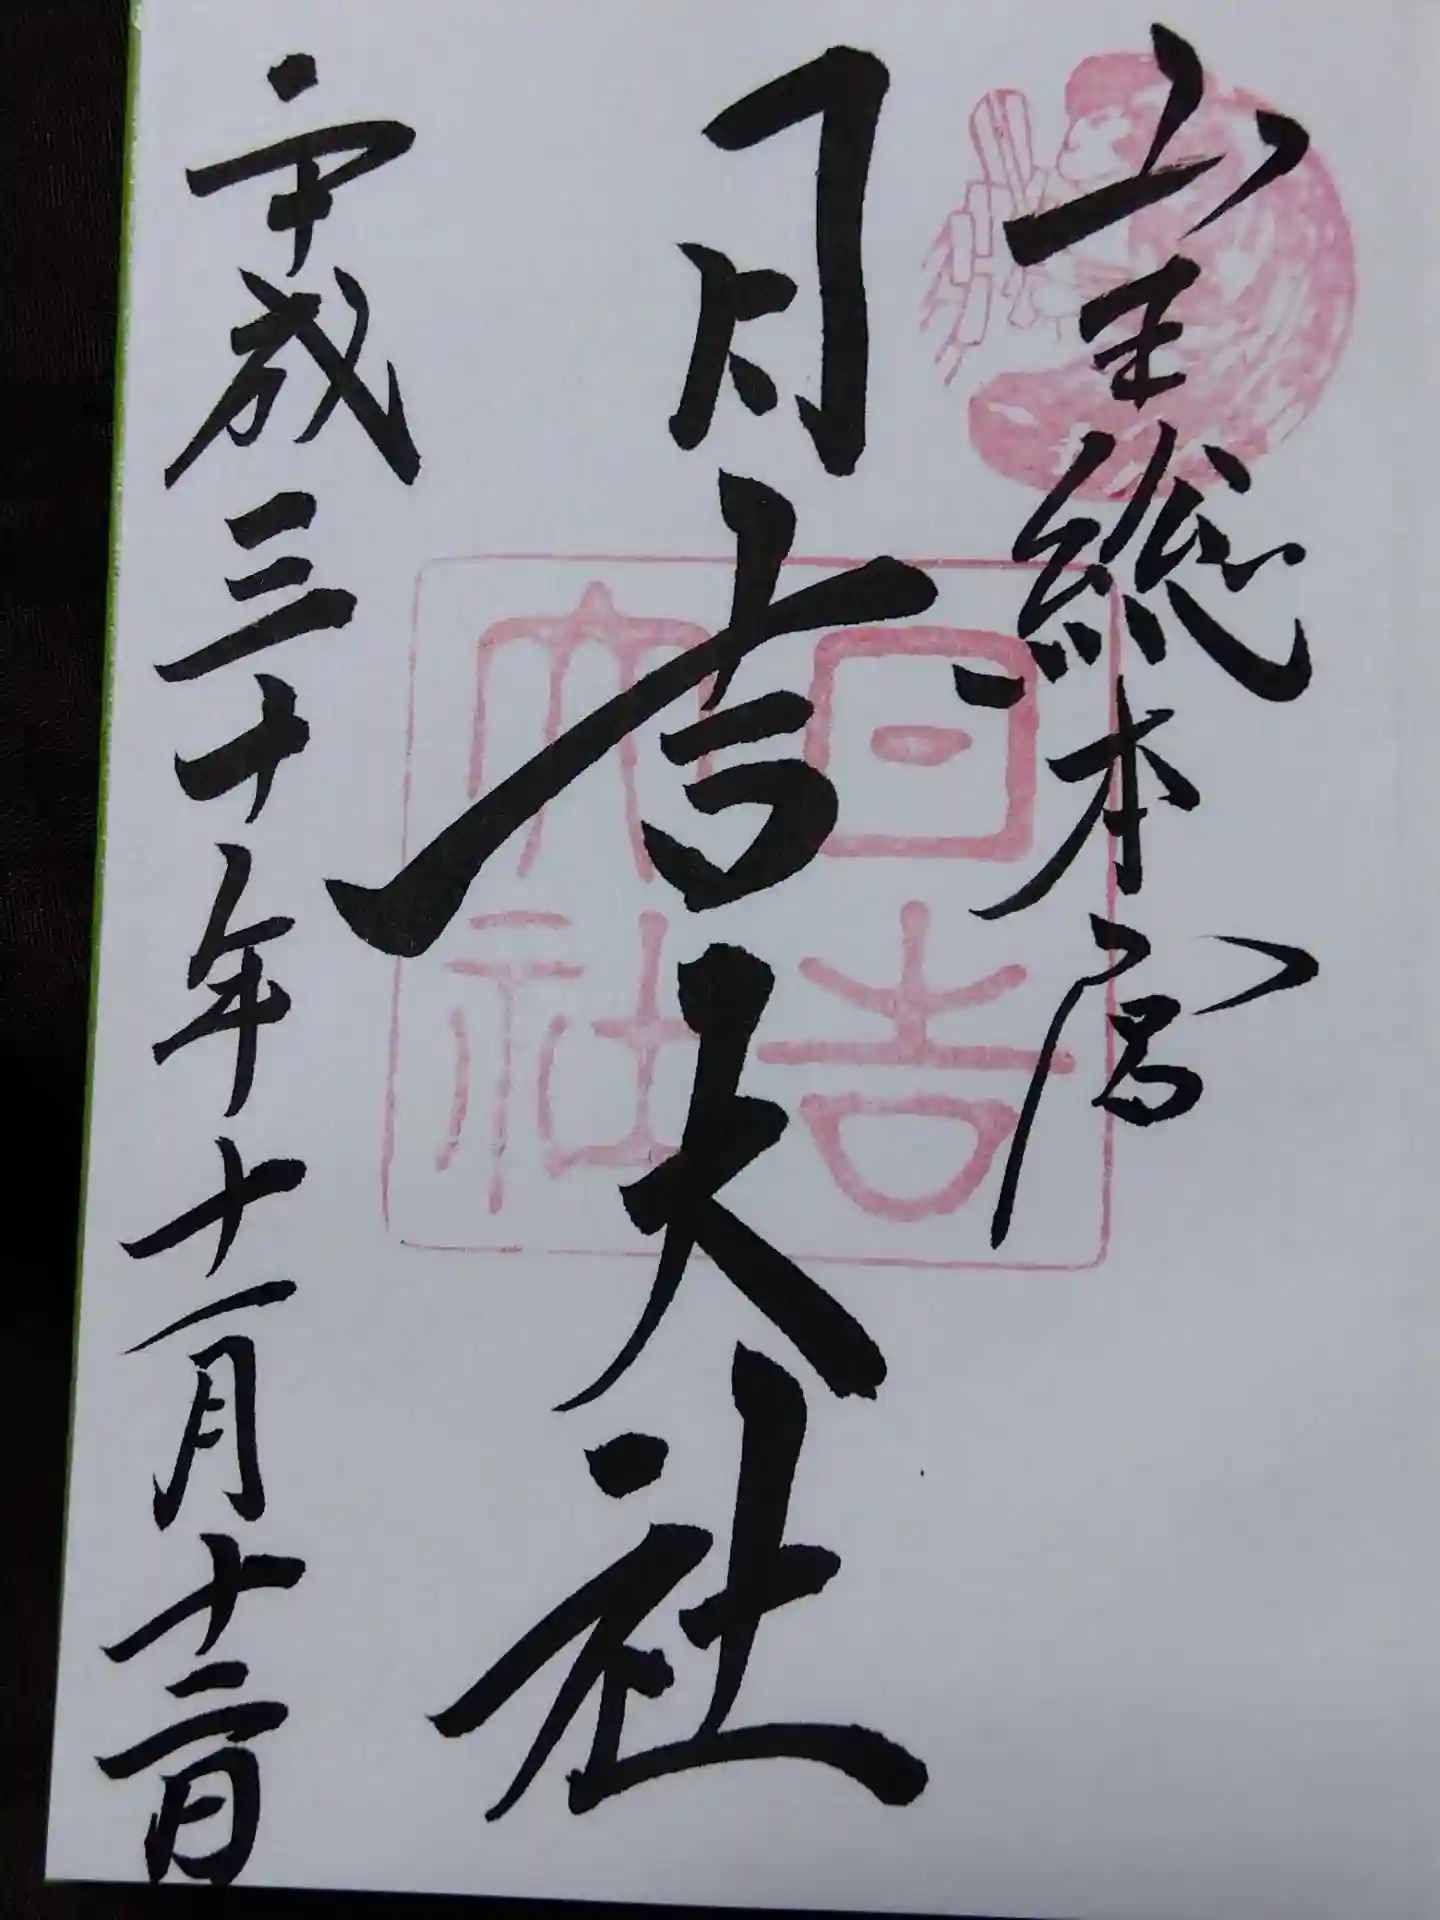 山王総本宮
日吉大社
平成三十年十一月十二日
日吉
大社